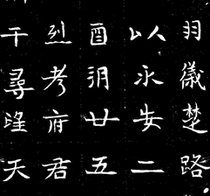 羽儀楚路
以永安二
酉朔廿五
烈考府君
千尋天